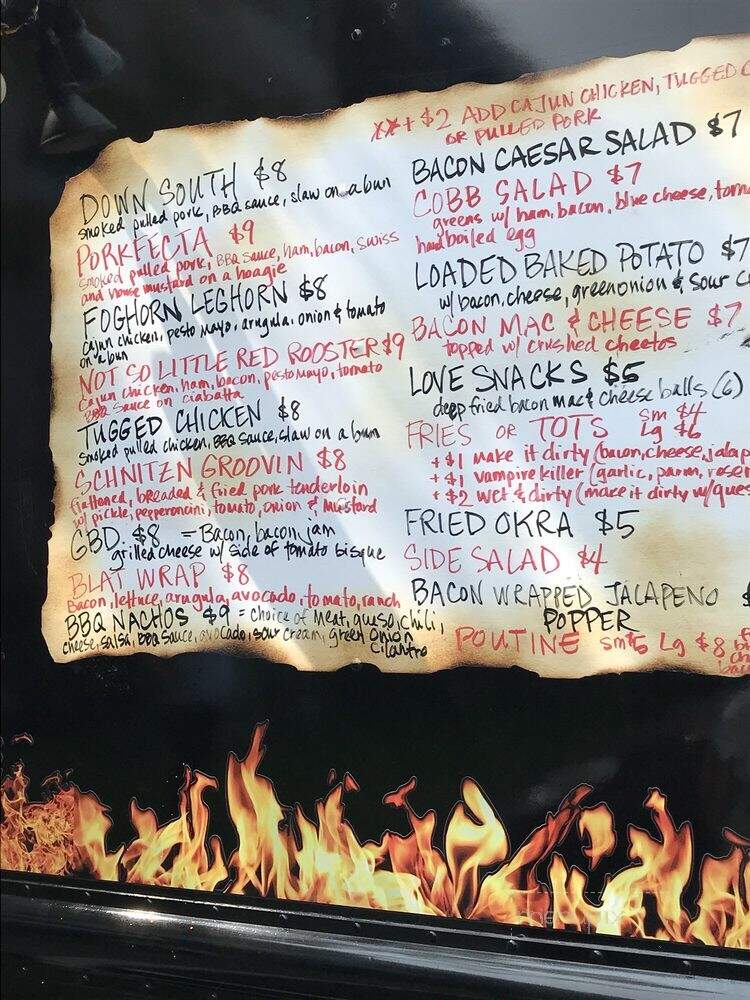 DOWN SOUTH $8
smoked pulled pork, BBQ sauce, slaw on a bun
PORKFECTA $9
smoked pulled pork, BBQ sauce, ham, bacon, swiss
and house mustard on a hoagie
FOGHORN LEGHORN $8
cajun chicken, pesto mayo, arugula, onion & tomato
on a bun
NOT SO LITTLE RED ROOSTER $9
cajun chicken, ham, bacon, pesto mayo, tomato
BBQ sauce on ciabatta
TUGGED CHICKEN $8
smoked pulled chicken, BBQ sauce, slaw on a bun
SCHNITZN GROOVIN $8
flattened, breaded & fried pork tenderloin
w/ pickle, pepperoncini, tomato, onion & mustard
GBD. $8 = Bacon, bacon jam
grilled cheese w/ side of tomato bisque
BLAT WRAP $8
Bacon, lettuce, arugula, avocado, tomato, ranch
BBQ NACHOS $9 = choice of meat, queso, chili,
cheese, salsa, BBQ sauce, avocado, sour cream, green onion
cilantro
**+ $2 ADD CAJUN CHICKEN, TUGGED C
OR PULLED PORK
BACON CAESAR SALAD $7
COBB SALAD $7
greens w/ ham, bacon, blue cheese, toma
hard boiled egg
LOADED BAKED POTATO $7
w/ bacon, cheese, green onion & sour c
BACON MAC & CHEESE $7
topped w/ crushed cheetos
LOVE SNACKS $5
deep fried bacon mac & cheese balls (6)
FRIES OR TOTS Sm $4
Lg $6
+$1 make it dirty (bacon, cheese, jalap
+$1 vampire killer (garlic, parm, roser
+$2 wet & dirty (make it dirty w/ ques
FRIED OKRA $5
SIDE SALAD $4
BACON WRAPPED JALAPENO $
POPPER
POUTINE sm $5 Lg $8